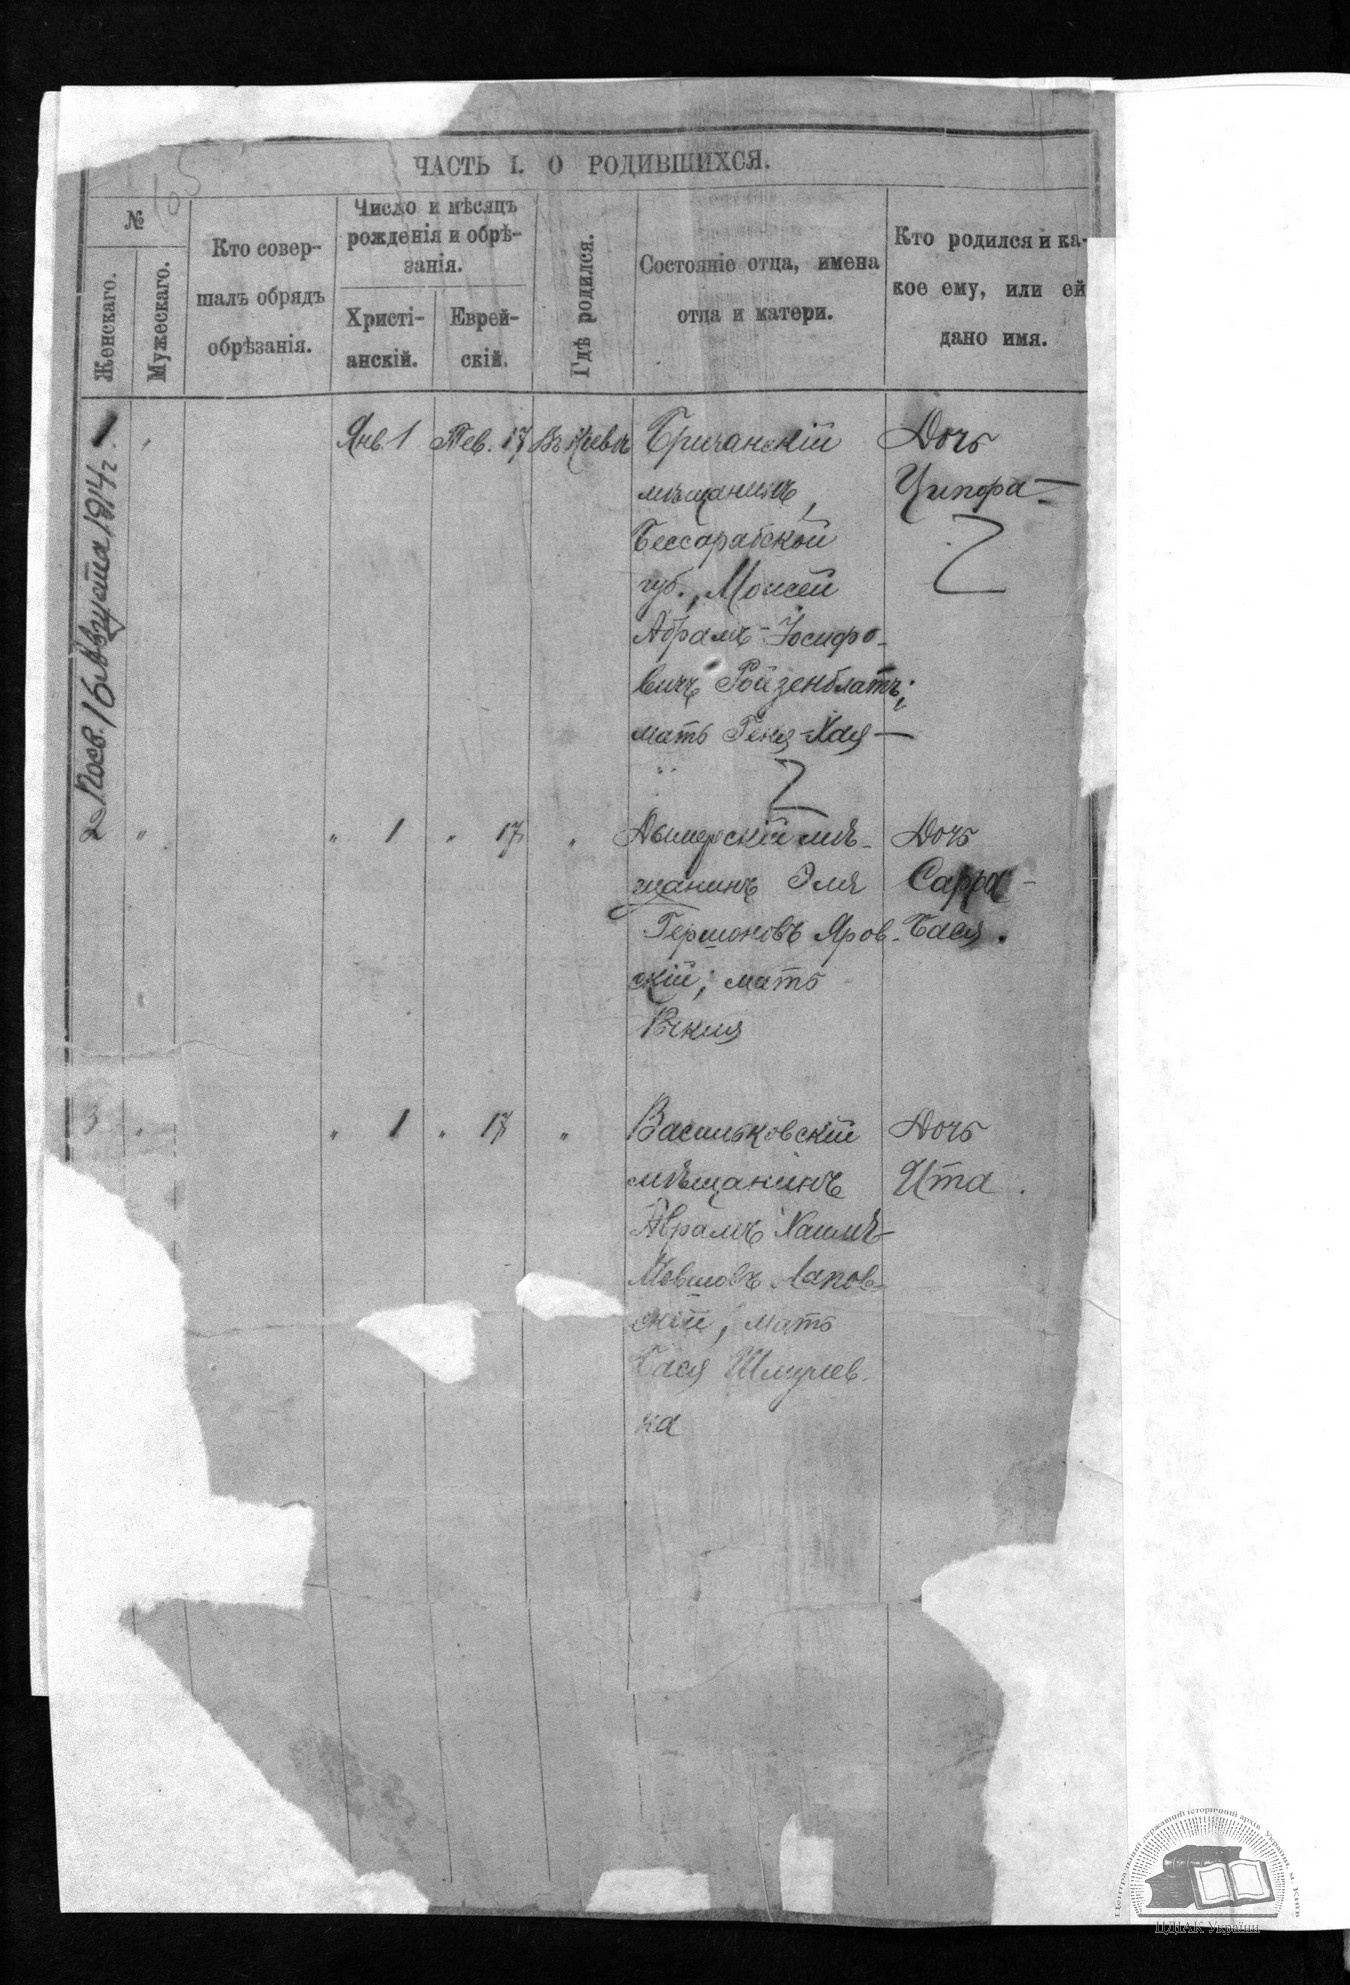 105
ЧАСТЬ I. О РОДИВШИХСЯ.
№
Женскаго.
Мужескаго.
Кто совер-
шалъ обрядъ
обрѣзанія.
Число и мѣсяцъ
рожденія и обрѣ-
занія.
Христі-
анскій.
Еврей-
скій.
Гдѣ родился.
Состояніе отца, имена
отца и матери.
Кто родился и ка-
кое ему, или ей
дано имя.
16 Августа 1914 г.
1
Янв. 1
Тев. 17
Въ Кіевѣ
Бричанскій
мѣщанинъ,
Бессарабской
губ., Моисей
Абрамъ-Іосифо-
вичъ Розенблатъ;
мать Геня-Хая —
Дочь
Ципора —
2
"
" 1
" 17
"
Дымерскій мѣ-
щанинъ Эля
Гершоновъ Яров-
скій; мать
Дочь
Сарра -
Бася.
3
"
" 1
" 17
"
Васильковскій
мѣщанинъ
Аврамъ Хаимъ-
Мовшовъ Лапов-
скій, мать
Бася Шмулев-
на
Дочь
Ита.
Центральний державний історичний архів України, м. Київ
ЦДІАК України